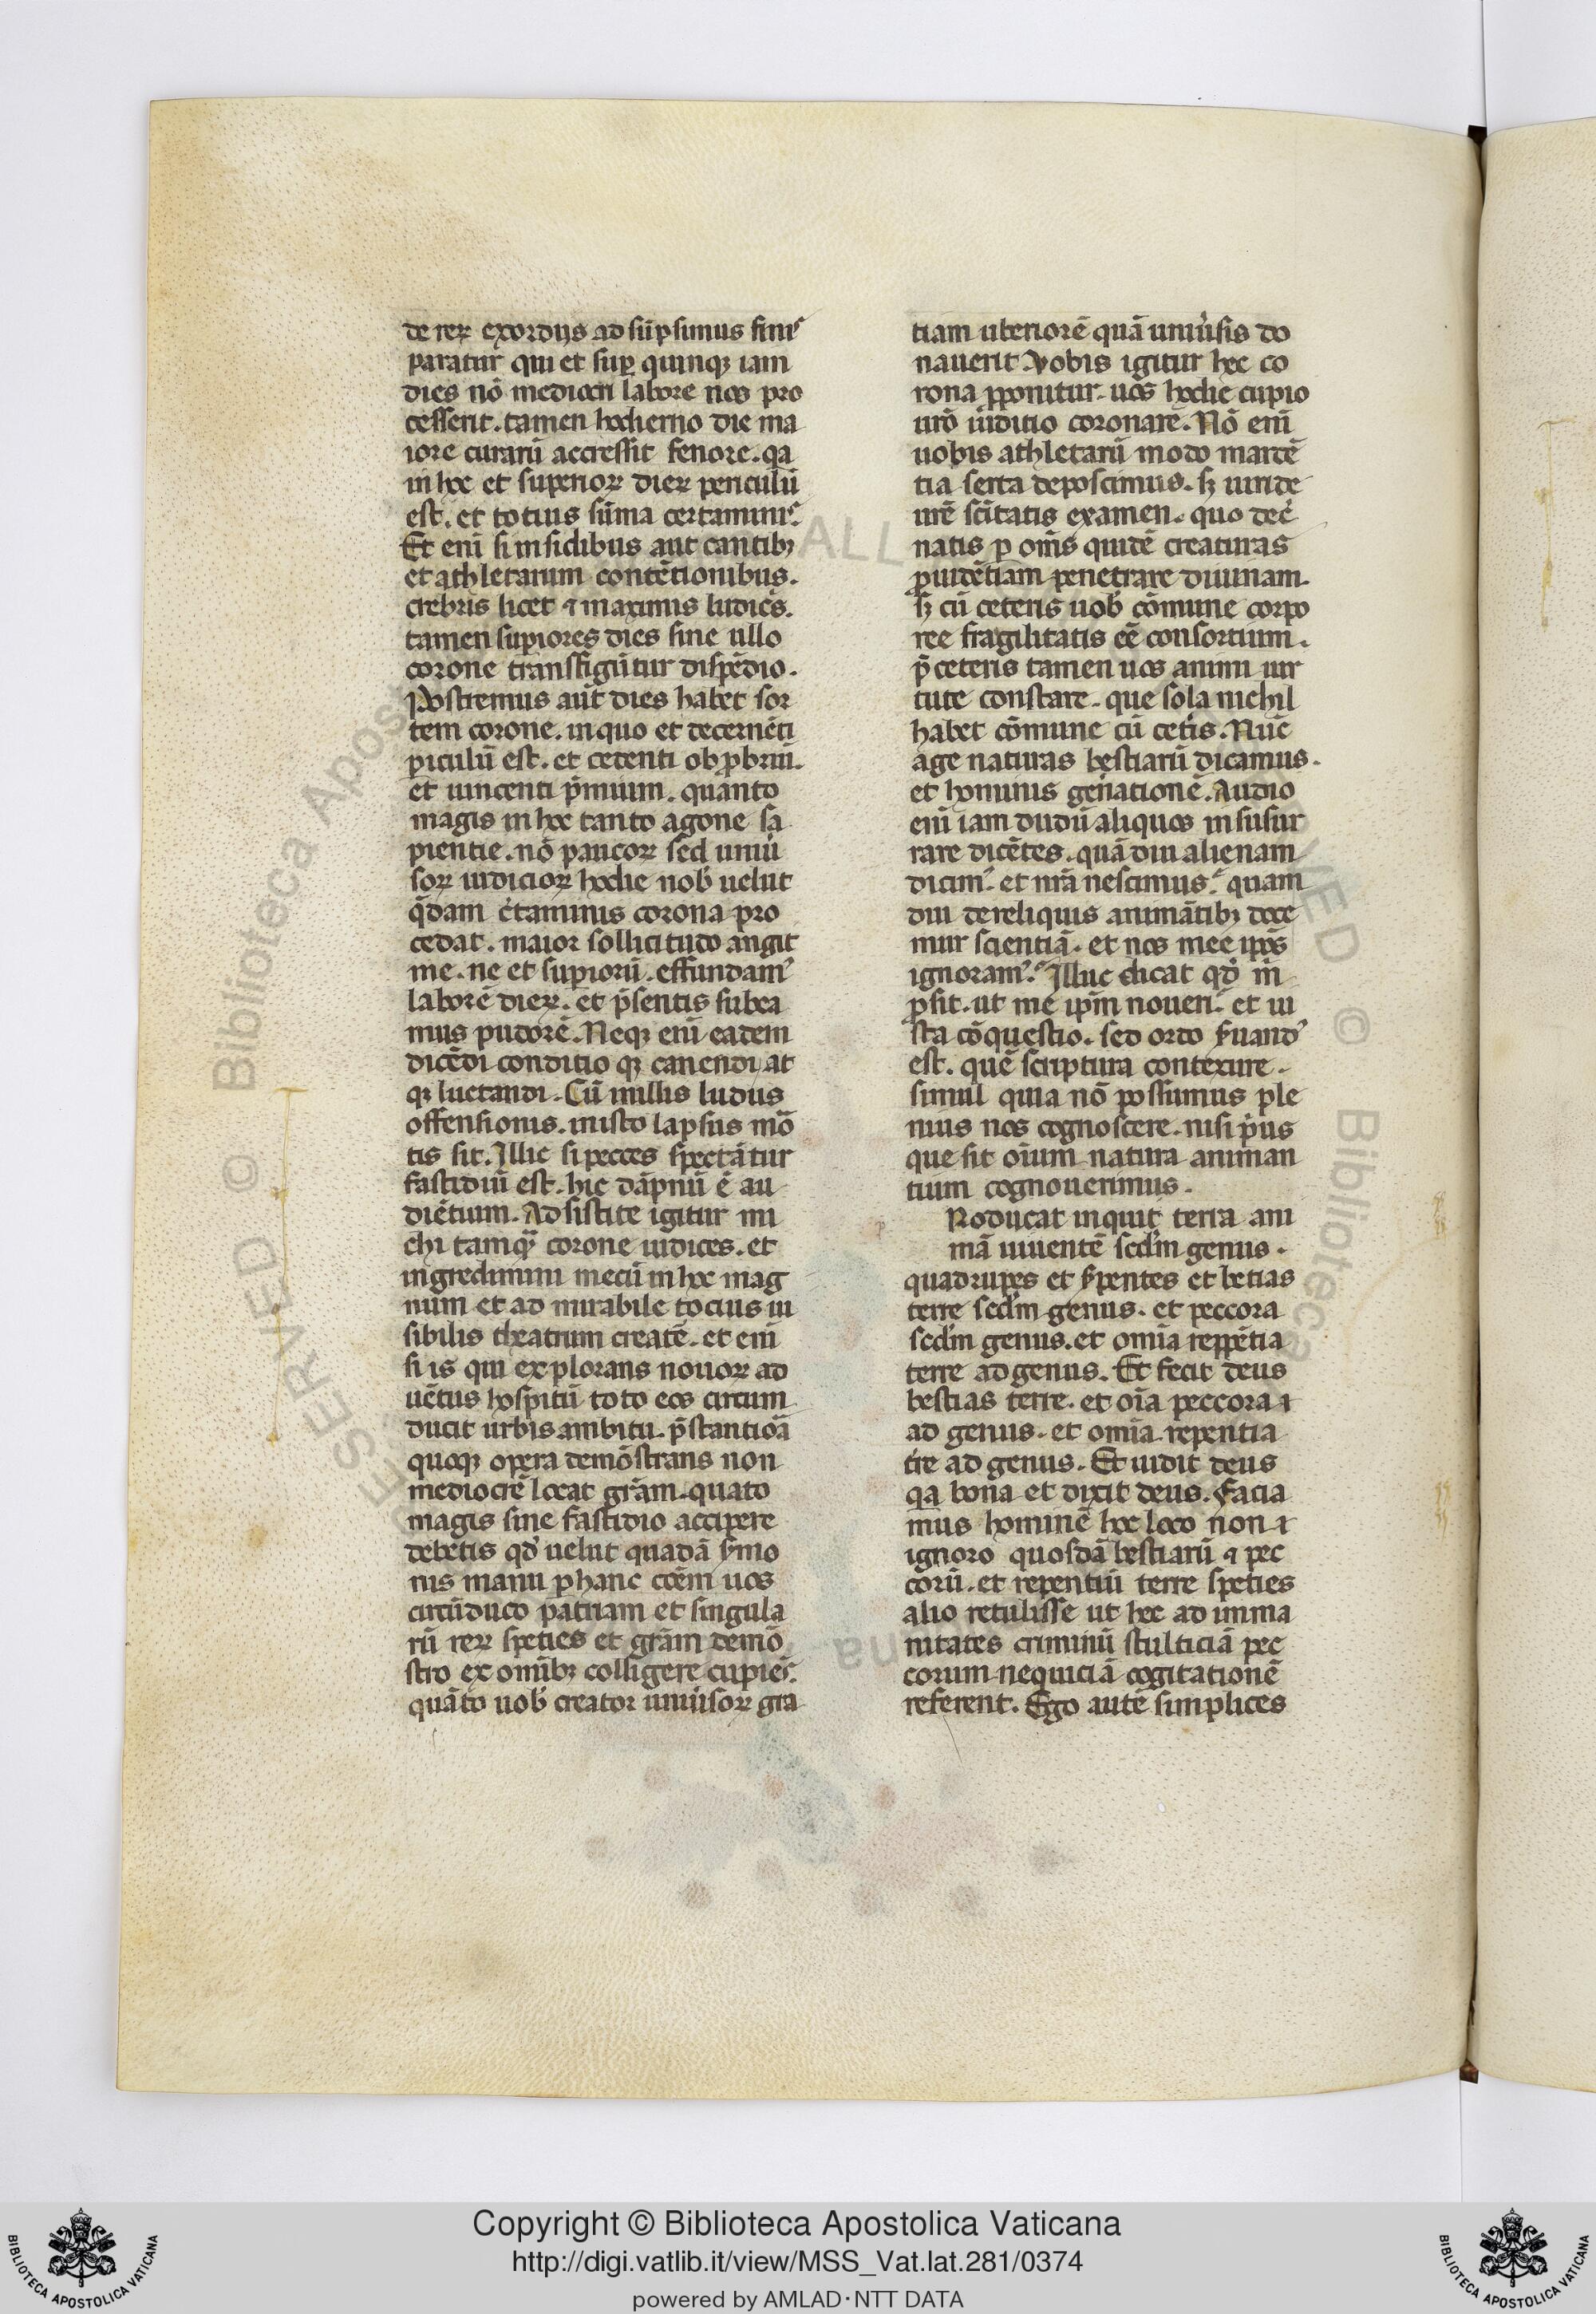 de reꝝ exordijs ad sūpsimus finiꝰ
paratur qui et suꝑ quinqꝫ iam
dies nō mediocri labore nos pro
cesserit. tamen hodierno die ma
iore curarū accressit fenore. qa
in hoc et superioꝝ dieꝝ periculū
est. et totius sūma certaminiꝰ.
Et enī si in fidibus aut cantibꝫ
et athletarum contētionibus.
crebris licet ⁊ maximis ludicͥs.
tamen suꝑiores dies sine ullo
corone transfigūtur dispēdio.
Postremus aūt dies habet sor
tem corone. in quo et decernēti
ꝑiculū est. et cedenti obꝓbriū.
et uincenti p̄mium. quanto
magis in hoc tanto agone sa
pientie. nō paucoꝝ sed uniū
soꝝ iudicioꝝ hodie nob̓ uelut
q̄dam c̓taminis corona pro
cedat. maior sollicitudo angit
me. ne et suꝑiorū. effundamꝰ
laborē dieꝝ. et p̄sentis subea
mus pudorē. Neqꝫ enī eadem
dicēdi conditio qꝫ canendi at
qꝫ luctandi. Cū in illis ludus
offensionis. in isto lapsus mō
tis sit. Illic si pecces spectātur
fastidiū est. hic dāpnū ē au
diētium. Adsistite igitur mi
chi tamqᷓ corone iudices. et
ingredimini mecū in hoc mag
num et ad mirabile tocius ui
sibilis theatrum createˉ. et enī
si is qui explorans nouoꝝ ad
uētus hospitū toto eos circum
ducit urbis ambitu. p̄stantioā
quoqꝫ opera demōstrans non
mediocrē locat grām. quāto
magis sine fastidio accipere
debetis qd̓ uelut quadā ẜmo
nis manu ꝑ hanc cōēm uos
circūduco patriam et singula
rū reꝝ speties et grām demō
stro ex omībꝫ colligere cupieꝰ.
quāto uob̓ creator uniūsoꝝ gra
tiam uberiorē quā uniūsis do
nauerit. Vobis igitur hec co
rona ꝓponitur. uos hodie cupio
urō iuditio coronare. Nō enī
uobis athletarū modo marcē
tia serta deposcimus. sꝫ uiride
urē scītatis examen. quo dec̓
natis ꝑ omīs quidē creaturas
ꝓuidētiam penetrare diuinam.
sꝫ cū ceteris uob̓ cōmune corpo
ree fragilitatis eē consortium.
p̄ ceteris tamen uos animi uir
tute constare. que sola nichil
habet cōmune cū cet̓is. Nūc
age naturas bestiarū dicamus.
et hominis gen̓ationē. Audio
enī iam dudū aliquos in susur
rare dicētes. quā diu alienam
dicimꝰ. et nrā nescimus. quam
diu de reliquis animātibꝫ doce
mur scientiā. et nos mee ipōs
ignoramꝰ. Illuc dicat qd̓ m̄
ꝓsit. ut me ip̄m nouerī. et iu
sta cōquestio. sed ordo ẜuandꝰ
est. quē scriptura contexure.
simul quia nō possumus ple
nius nos cognoscere. nisi pͥus
que sit oīum natura animan
tium cognouerimus.
Roducat inquit terra ani
mā uiuentē scdm̄ genus.
quadrupes et ẜpentes et betias
terre scdm̄ genus. et peccora
scdm̄ genus. et omīa reppētia
terre ad genus. Et fecit deus
bestias terre. et oīa peccora ⁊
ad genus. et omīa repentia
tr̄e ad genus. Et uidit deus
qa bona et dixit deus. Facia
mus hominē hoc loco non ⁊
ignoro quosdā bestiarū ⁊ pec
corū. et repentiū terre speties
alio retulisse ut hec ad imma
nitates criminū stulticiā pec
corum nequiciā cogitationē
referent. Ego autē simplices
Copyright © Biblioteca Apostolica Vaticana
http://digi.vatlib.it/view/MSS_Vat.lat.281/0374
powered by AMLAD·NTT DATA
BIBLIOTECA APOSTOLICA VATICANA
BIBLIOTECA APOSTOLICA VATICANA